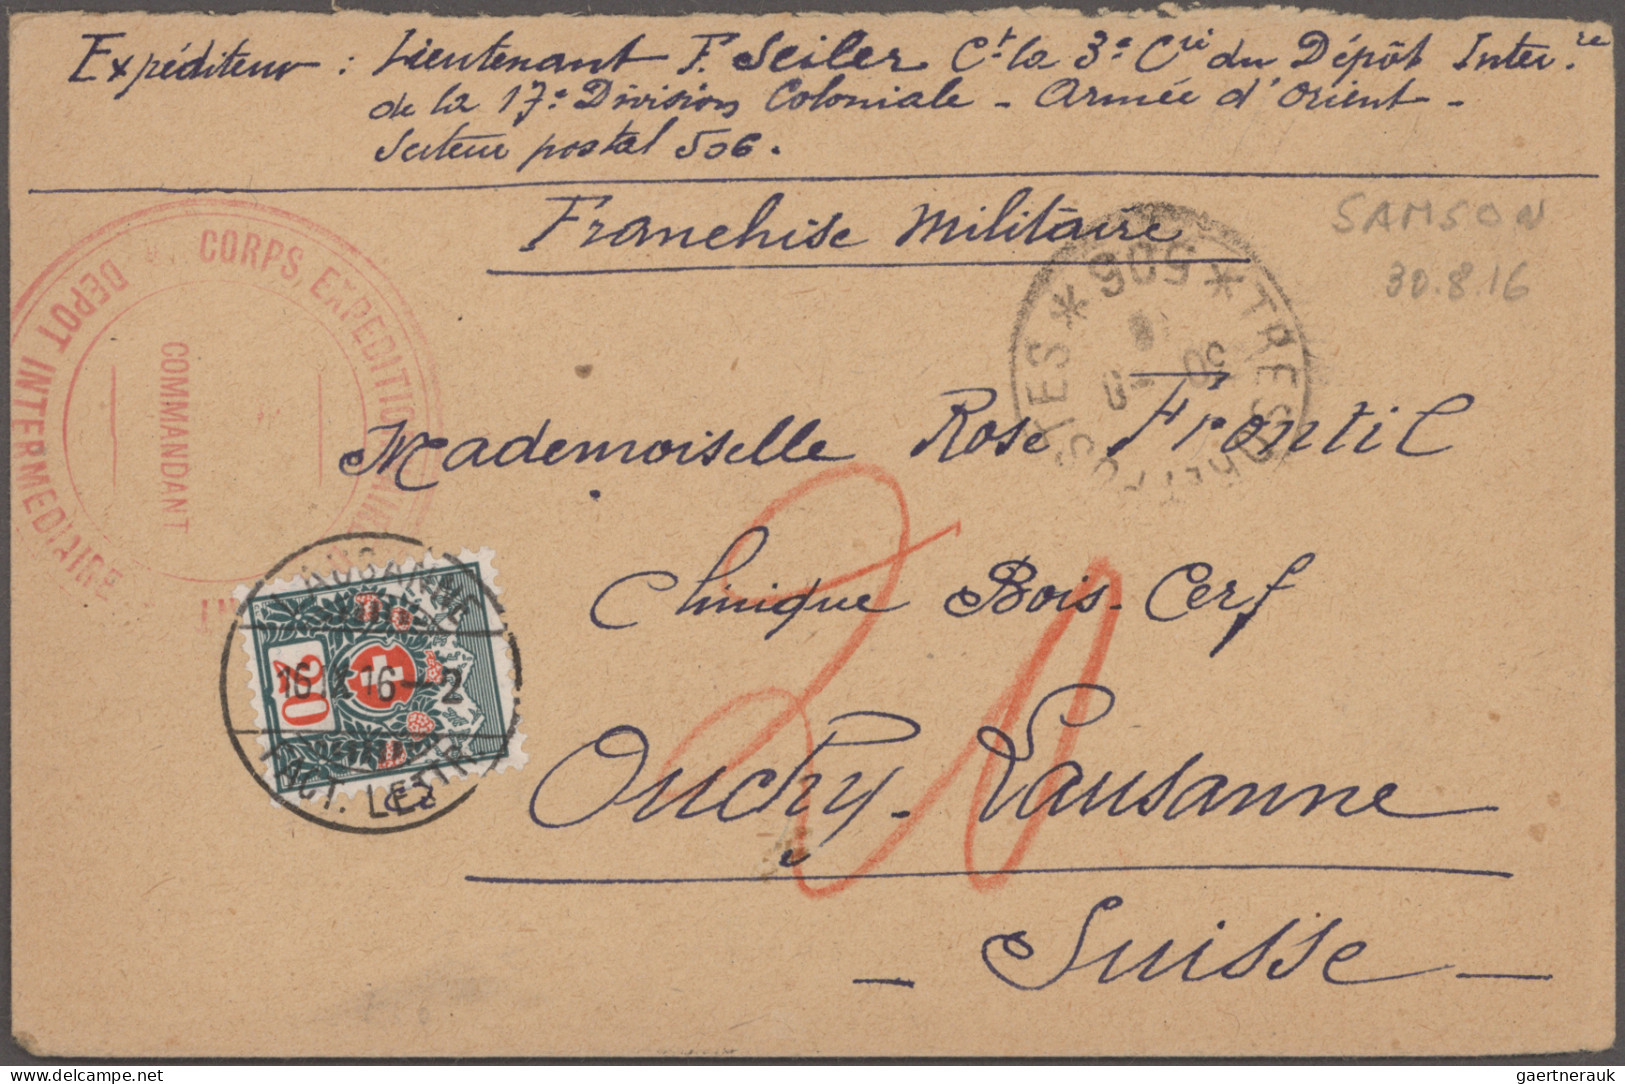 Expéditeur : Lieutenant F. Seiler Ct la 3e Cie du Dépôt Inter.re
de la 17e Division Coloniale - Armée d'Orient -
Secteur postal 506.
Franchise Militaire
SAMSON
30.8.16
CORPS EXPEDITIONNAIRE
DEPOT INTERMEDIAIRE
COMMANDANT
* 506 * TRESOR ET POSTES
30
Mademoiselle Rose Frontil
Clinique Bois-Cerf
Ouchy-Lausanne
- Suisse -
20
LAUSANNE
16.IX.16-2
LETTR.
20
gaertnerauk